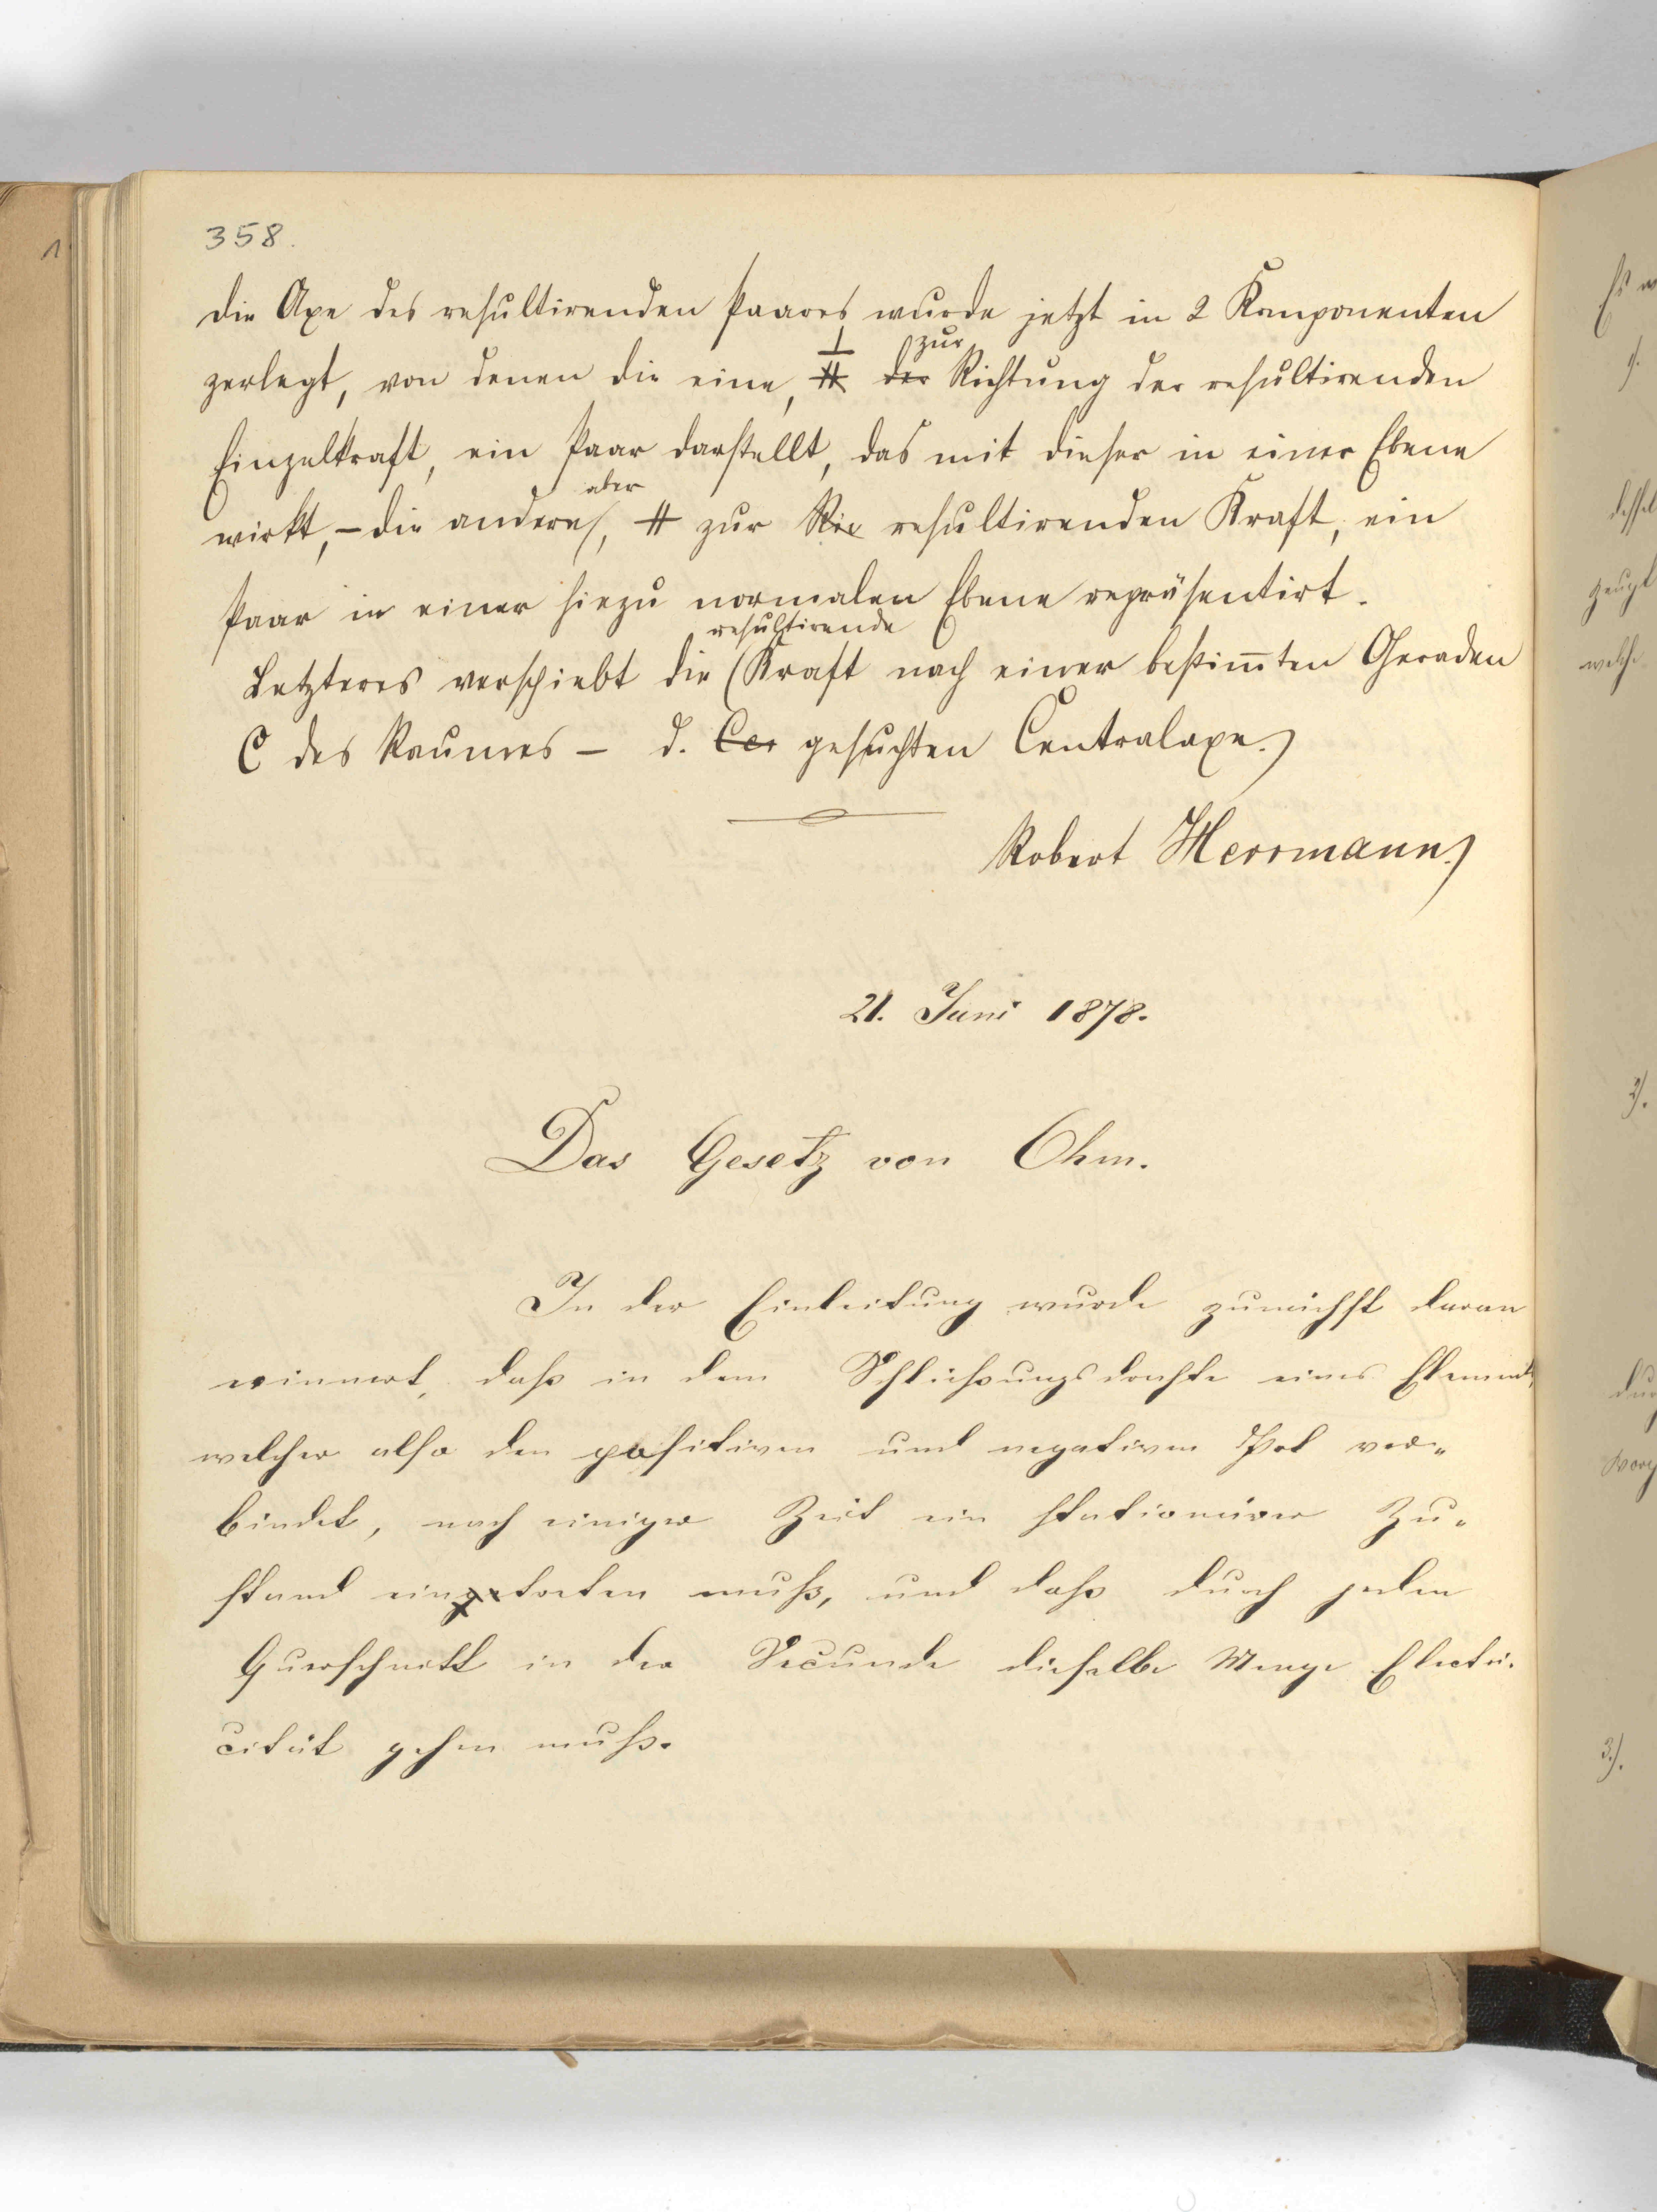 358.
Die Axe des resultirenden Paares wurde jetzt in 2 Komponenten
⊥ zur
zerlegt, von denen die eine, # der Richtung der resultirenden
Einzelkraft, ein Paar darstellt, das mit dieser in einer Ebene
aber
wirkt, – die andere, # zur Ric resultirenden Kraft, ein
Paar in einer hiezu normalen Ebene repräsentirt.
resultirende
Letzteres verschiebt die (Kraft nach einer bestim̅ten Geraden
C des Raumes – d. Cer gesuchten Centralaxe.
Robert Herrmann.
21. Juni 1878.
Das Gesetz von Ohm.
In der Einleitung wurde zunächst daran
erinnert, daß in dem Schließungsdrahte eines Elements,
welcher also den positiven und negativen Pol ver-
bindet, nach einiger Zeit ein stationärer Zu-
stand eingetreten muß, und daß durch jeden
Querschnitt in der Secunde dieselbe Menge Electri-
cität gehen muß.
1
Es w
1).
dessel
zeugt
welche
2).
3).